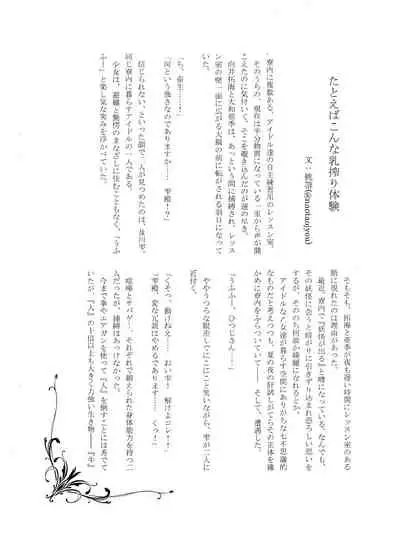 たとえばこんな乳搾り体験
文：桃沼(@anotaoiyou)
寮内に複数ある、アイドル達の自主練習用のレッスン室。
そのうちの、現在は半分物置になっている一室から声が聞
こえたのに気付いて、そこを覗き込んだのが運の尽き。
向井拓海と大和亜季は、あっという間に捕縛され、レッス
ン室の壁一面に広がる大鏡の前に転がされる羽目になって
いた。
「っ、雫……！」
「何という強さなのでありますか……雫殿！？」
信じられない、といった顔で二人が見つめたのは、及川雫。
同じ寮内に暮らすアイドルの一人である。
少女は、避難と驚愕のまなざしに怯むこともなく、「うふ
ふー」と楽し気な笑みを浮かべていた。
そもそも、拓海と亜季が夜も遅い時間にレッスン室のある
階に現れたのは理由があった。
最近、寮内で『妖怪が出る』と噂になっている。なんでも、
その妖怪に会うと暗がりに引きずり込まれ恐ろしい思いを
するが、そののち何故か綺麗になれるとか。
アイドルな乙女達が暮らす空間にありがちな七不思議的
なものだと考えつつも、夏の夜の肝試しがてらその正体を確
かめに寮内をふらついていて――そして、遭遇した。
「うふふー、ひつじさん……」
ややうつろな眼差しでにこにこと笑いながら、雫が二人に
近付く。
「くそっ、動けねえ！　おい雫！　解けよコレ！」
「雫殿、変な冗談はやめるであります……くっ！」
喧嘩とサバゲー、それぞれで鍛えられた身体能力を持つ二
人だったが、捕縛はあっけなかった。
今まで拳やエアガンを使って『人』を倒すことには秀でて
いたが、『人』の十倍以上も大きく力強い生き物――『牛』